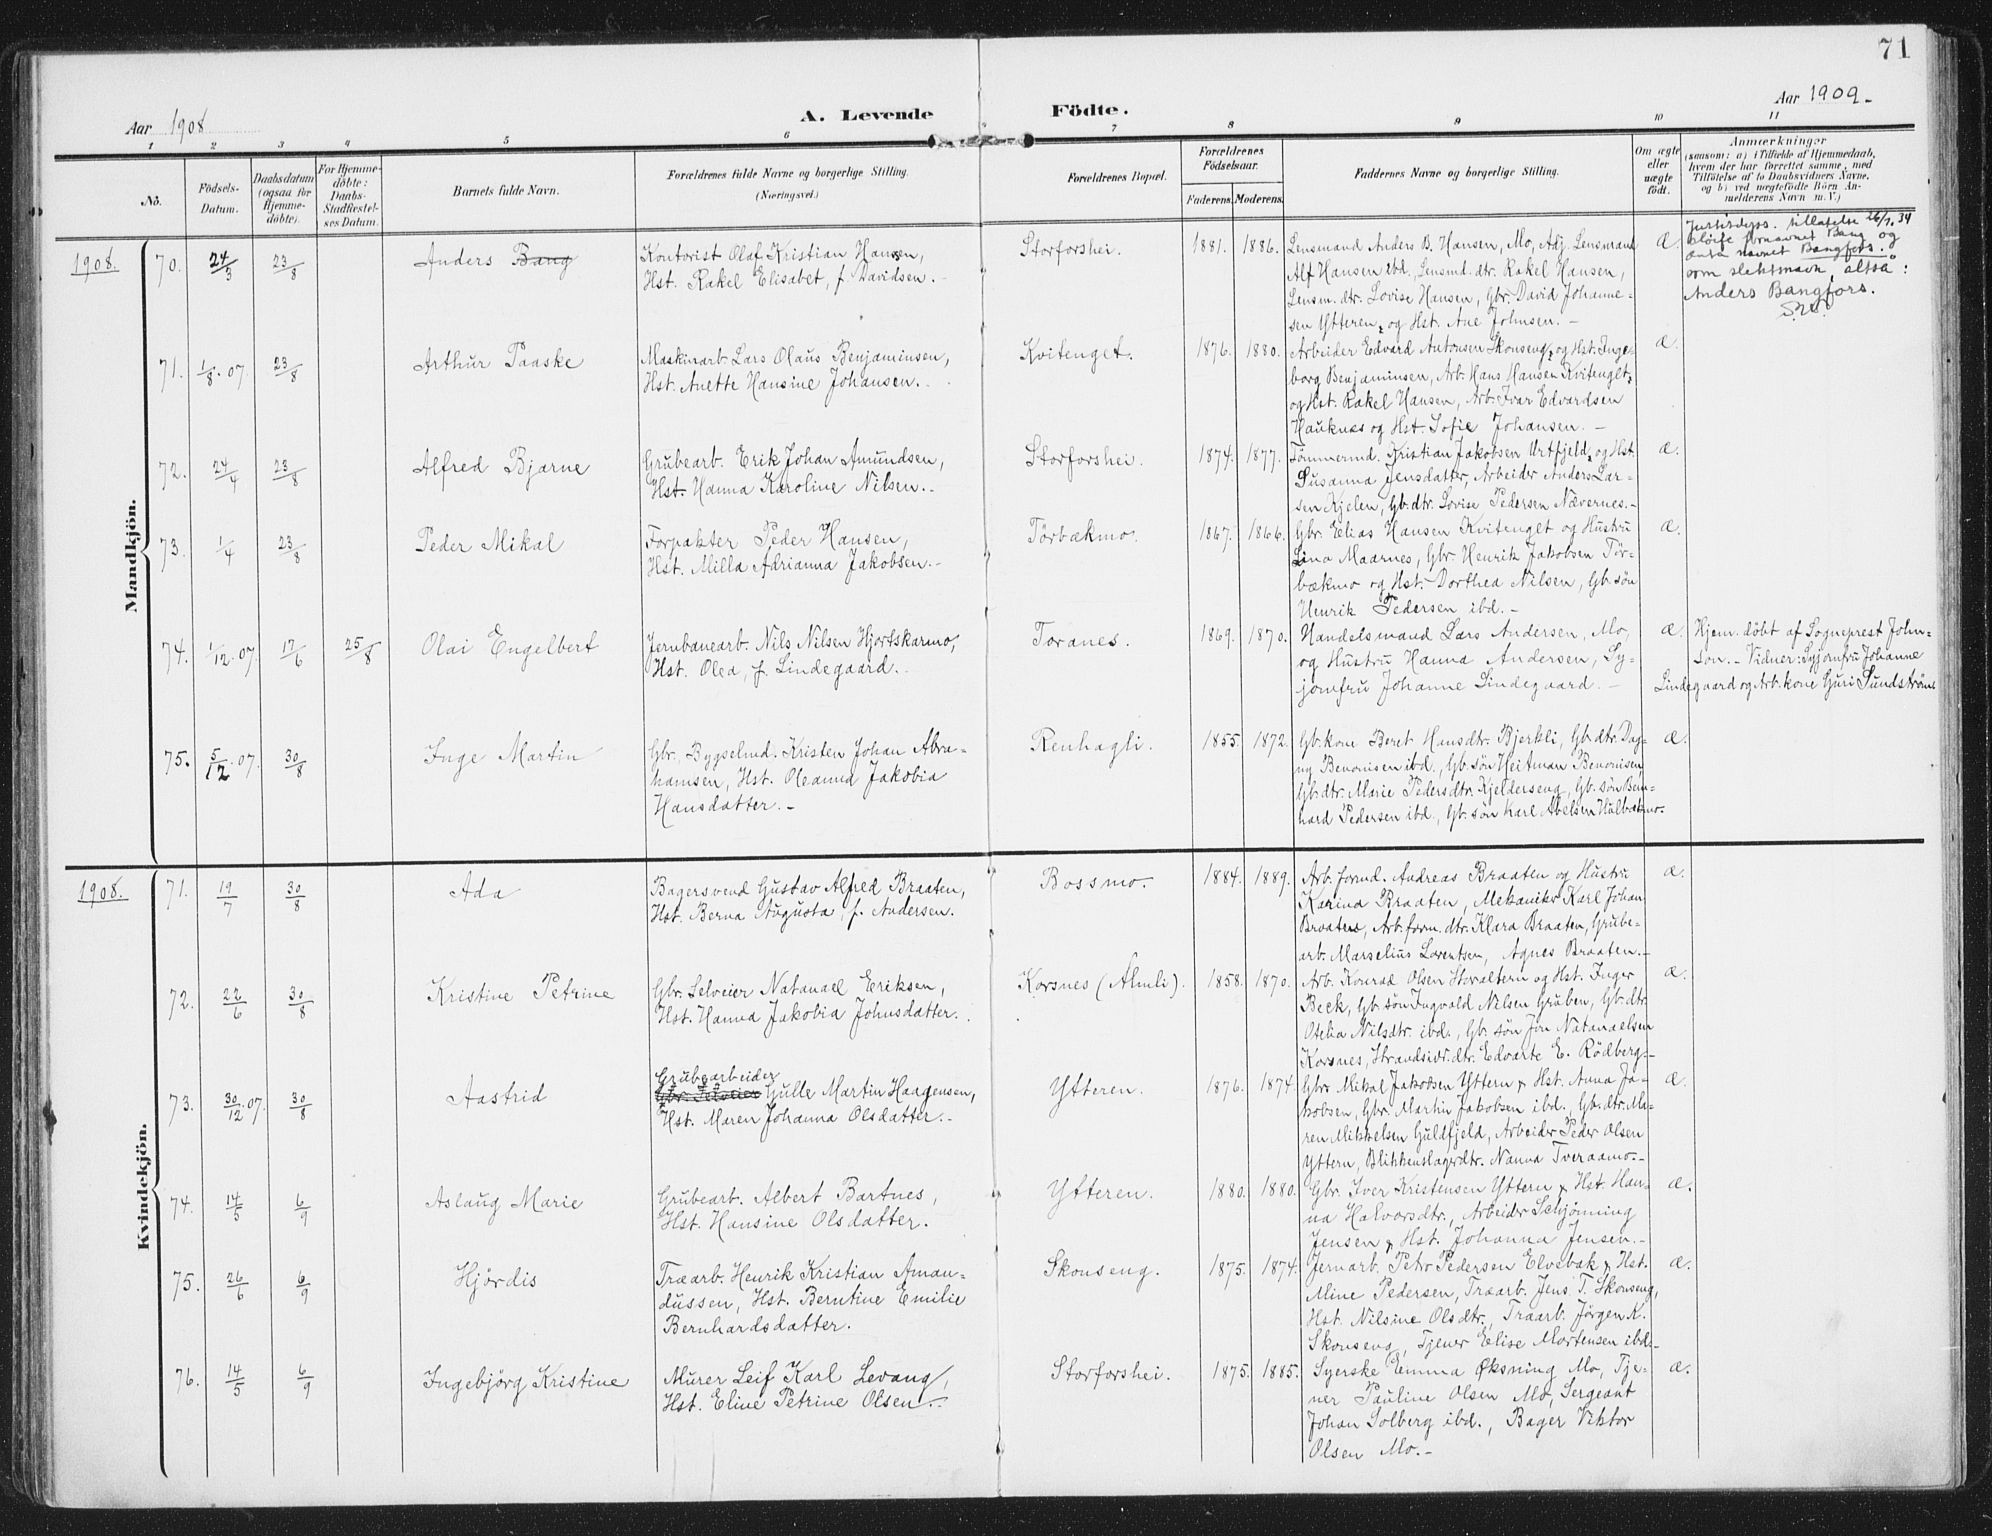 71
Aar 1908
A. Levende
Födte.
Aar 1909.
1 2 3 4 5 6 7 8 9 10 11
No.
Födsels-
Datum.
Daabsdatum
(ogsaa for
Hjemme-
döbte).
For Hjemme-
döbte:
Daabs-
Stadfæstel-
ses Datum.
Barnets fulde Navn.
Forældrenes fulde Navne og borgerlige Stilling.
(Næringsvei.)
Forældrenes Bopæl.
Forældrenes
Födselsaar.
Faderens. Moderens.
Faddernes Navne og borgerlige Stilling.
Om ægte
eller
uægte
födt.
Anmærkninger
(saasom: a) i Tilfælde af Hjemmedaab,
hvem der har forrettet samme, med
Tilföielse af to Daabsvidners Navne,
og b) ved uægtefödte Börn An-
melderens Navn m. V.)
Mandkjön.
1908.
70. 24/3 23/8
Anders Bang
Kontorist Olaf Kristian Hansen,
Hst. Rakel Elisabet, f. Davidsen.-
Storforshei.
1881. 1886.
Lensmand Anders B. Hansen, Mo, Adj. Lensmand
Alf Hansen ibd., Lensmd. dtr. Rakel Hansen,
Lensm. dtr. Lovise Hansen, Gbr. David Johanne-
sen Ytteren, og Hst. Ane Johnsen.-
Æ.
Justisdeps. tillatelse 26/7. 34
sløife fornavnet Bang og
anta navnet Bangfors.
som slektsnavn, altså:
Anders Bangfors.
71. 1/8. 07 23/8
Arthur Paaske
Maskinarb. Lars Olaus Benjaminsen,
Hst. Anette Hansine Johansen.
Kvitenget.
1876. 1880.
Arbeider Edvard Antonsen Skonseng, og Hst. Inge-
borg Benjaminsen, Arb. Hans Hansen Kvitenget,
og Hst. Rakel Hansen, Arb. Ivar Edvardsen
Hauknes og Hst. Sofie Johansen.-
Æ.
72. 24/4 23/8
Alfred Bjarne
Grubearb. Erik Johan Amundsen,
Hst. Hanna Karoline Nilsen.
Storforshei.
1874. 1877.
Tømmermd. Kristian Jakobsen Urtfjeld, og Hst.
Susanna Jensdatter, Arbeider Anders Lar-
sen Kjelen, Gb. dtr. Lovise Pedersen Nævernes.-
Æ.
73. 1/4 23/8
Peder Mikal
Forpakter Peder Hansen,
Hst. Milla Adrianna Jakobsen.-
Tørbækmo.
1867. 1866.
Gbr. Elias Hansen Kvitenget og Hustru
Lina Maarnes, Gbr. Henrik Jakobsen Tør-
bækmo og Hst. Dorthea Nilsen, Gb. søn
Henrik Pedersen ibd.-
Æ.
74. 1/12. 07. 17/6 25/8
Olai Engelbert
Jernbanearb. Nils Nilsen Hjortskarmo,
Hst. Olea, f. Lindegaard.
Toranes.
1869. 1870.
Handelsmand Lars Andersen, Mo,
og Hustru Hanna Andersen, Sy-
jomfru Johanne Lindegaard.-
Æ.
Hjem. döbt af Sogneprest John-
son.- Vidner: Syjomfru Johanne
Lindegaard og Arb. kone Guri Sundstrøm
75. 5/12. 07. 30/8
Inge Martin
Gbr., Bygselmd. Kristen Johan Abra-
hamsen, Hst. Oleanna Jakobia
Hansdatter.-
Renhagli.
1855. 1872.
Gb. kone Beret Hansdtr. Bjerkli, Gb. dtr. Dag-
ny Benonisen ibd., Gb. søn Heitman Benonisen,
Gb. dtr. Marie Pedersdtr. Kjelderseng, Gb. søn Bern-
hard Pedersen ibd., Gb. søn Karl Abelsen Hulbækmo.
Æ.
Kvindekjön.
1908.
71. 19/7 30/8
Ada
Bagersvend Gustav Alfred Braaten,
Hst. Berna Augusta, f. Andersen.
Bossmo.
1884. 1889.
Arb. formd. Andreas Braaten og Hustru
Karina Braaten, Mekaniker Karl Johan
Braaten, Arb. form. dtr. Klara Braaten, Grube-
arb. Marselius Lorentsen, Agnes Braaten.-
Æ.
72. 22/6 30/8
Kristine Petrine
Gbr. Selveier Natanael Eriksen,
Hst. Hanna Jakobia Johnsdatter.
Korsnes (Almli).
1858. 1870.
Arb. Konrad Olsen Storvaltern og Hst. Inger
Beck, Gb. søn Ingvald Nilsen Gruben, Gb. dtr.
Otelia Nilsdtr. ibd., Gb. søn Jon Natanaelsen
Korsnes, Strandsidr. dtr. Edvarte E. Rödberg.-
Æ.
73. 30/12. 07. 30/8
Aastrid
Grubearbeider
Gbr. Selveier Gulle Martin Haagensen,
Hst. Maren Johanna Olsdatter.-
Ytteren.
1876. 1874.
Gbr. Mikal Jakobsen Yttern & Hst. Anna Ja-
kobsen, Gbr. Martin Jakobsen ibd., Gb. dtr. Ma-
ren Mikkelsen Guldfjeld, Arbeider Peder Olsen
Yttern, Blikkenslagerdtr. Nanna Tveraamo.-
Æ.
74. 14/5 6/9
Aslaug Marie
Grubearb. Albert Bartnes,
Hst. Hansine Olsdatter.
Ytteren.
1880. 1880.
Gbr. Iver Kristensen Yttern & Hst. Han-
na Halvorsdtr., Arbeider Schjønning
Jensen & Hst. Johanna Jensen.-
Æ.
75. 26/6 6/9
Hjördis
Træarb. Henrik Kristian Aman-
dussen, Hst. Berntine Emilie
Bernhardsdatter.
Skonseng.
1875. 1874.
Jernarb. Petr Pedersen Elvebak & Hst.
Aline Pedersen, Træarb. Jens T. Skonseng,
Hst. Nilsine Olsdtr., Træarb. Jørgen K.
Skonseng, Tjener Elise Mortensen ibd.-
Æ.
76. 14/5 6/9
Ingebjörg Kristine
Murer Leif Karl Levang,
Hst. Eline Petrine Olsen.-
Storforshei.
1875. 1885.
Syerske Emma Øksning Mo, Tje-
ner Pauline Olsen Mo, Sergeant
Johan Solberg ibd., Bager Viktor
Olsen Mo.-
Æ.